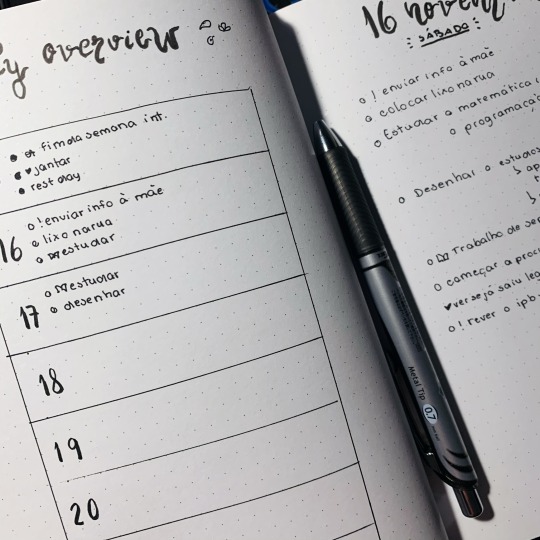 y overview
fim da semana int.
♥ jantar
rest day
16
! enviar info à mãe
lixo na rua
estudar
17
estudar
desenhar
18
19
20
Metal Tip
0.7
16 novem
SÁBADO
! enviar info à mãe
colocar lixo na rua
Estudar a matemática
programaçã
Desenhar o estudos
ap
Trabalho de ser
começar a proc
♥ ver se já saiu leg
! rever o ipb